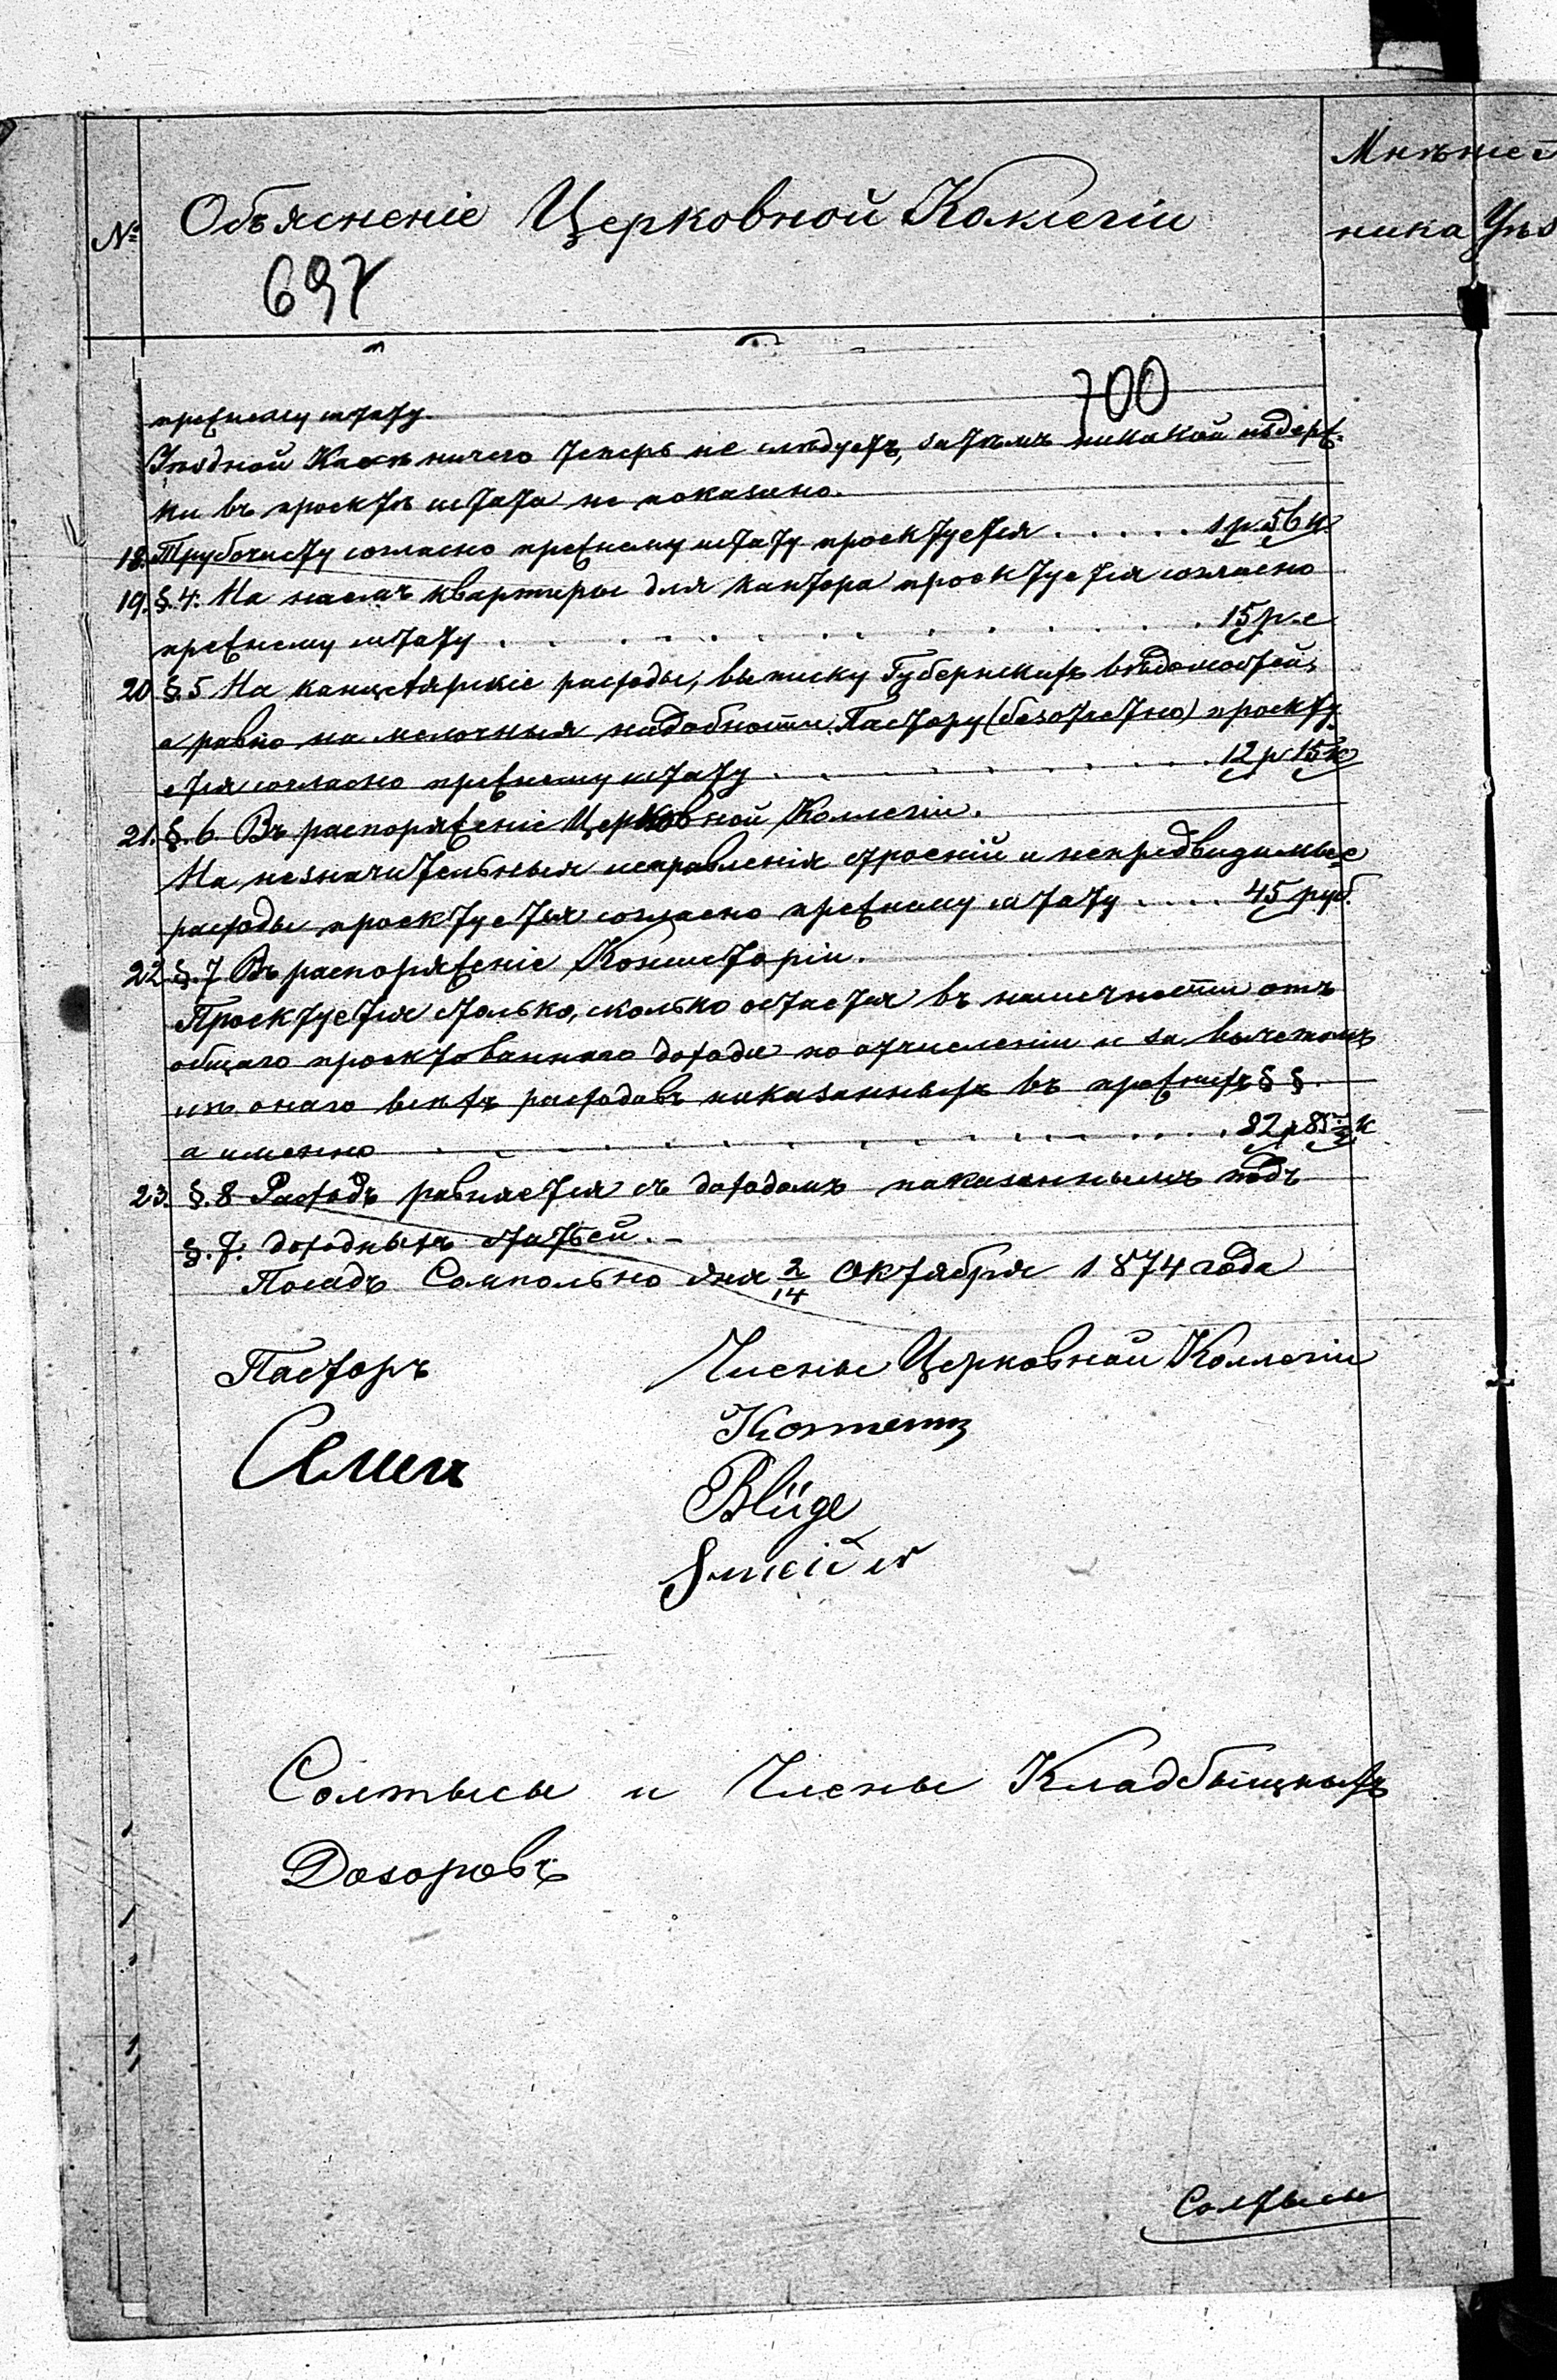 Мнѣніе
№ Объясненіе Церковной Коллегіи
ника Уѣз
697
700
прежнему штату
Уѣздной Кассѣ ничего теперь не слѣдуетъ, затѣмъ никакой издерж-
ки въ проектѣ штата не показано.
18. Трубочисту согласно прежнему штату проектуется . . . . . . 1 р 56 к
19. §. 4. На наемъ квартиры для Кантора проектуется согласно
прежнему штату . . . . . . . . . . . 15 р. с
20 §. 5 На канцелярскіе расходы, выписку Губернскихъ вѣдомостей,
а равно на мелочныя надобности Пастору (безотчетно) проекту-
ется согласно прежнему штату . . . . . . . . 12 р 15 к
21. §. 6 Въ распоряженіе Церковной Коллегіи.
На незначительныя исправленія строеній и непредвидимые
расходы проектуется согласно прежнему штату . . . . 45 руб.
22 §. 7 Въ распоряженіе Консисторіи.
Проектуется столько, сколько остается въ наличности отъ
общаго проектованнаго дохода по отчисленіи и за вычетомъ
изъ онаго всѣхъ расходовъ показанныхъ въ прежнихъ § §.
а именно . . . . . . . . . . . . 82 р 85 ½ к
23. §. 8 Расходъ равняется съ доходомъ показаннымъ подъ
§. 7. доходныхъ статьей. -
Посадъ Сомпольно дня 2/14 Октября 1874 года
Пасторъ Члены Церковной Коллегіи
Blüge
Солтысы и Члены Кладбищныхъ
Дозоровъ
Солтысы